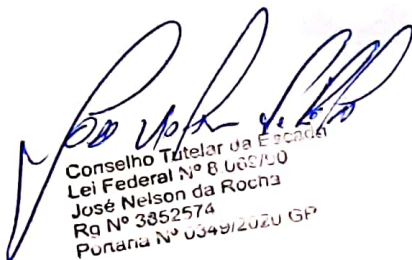 Conselho Tutelar da Escada
Lei Federal Nº 8.069/90
José Nelson da Rocha
Rg Nº 3852574
Portaria Nº 0349/2020 GP